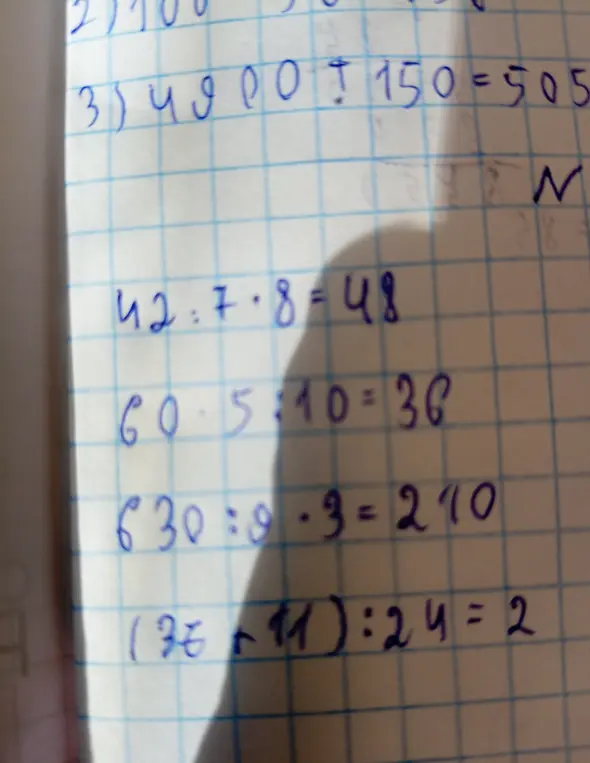 3) 4900 + 150 = 505
N
42 : 7 · 8 = 48
60 · 5 : 10 = 36
630 : 9 · 3 = 210
+ 11) : 24 = 2